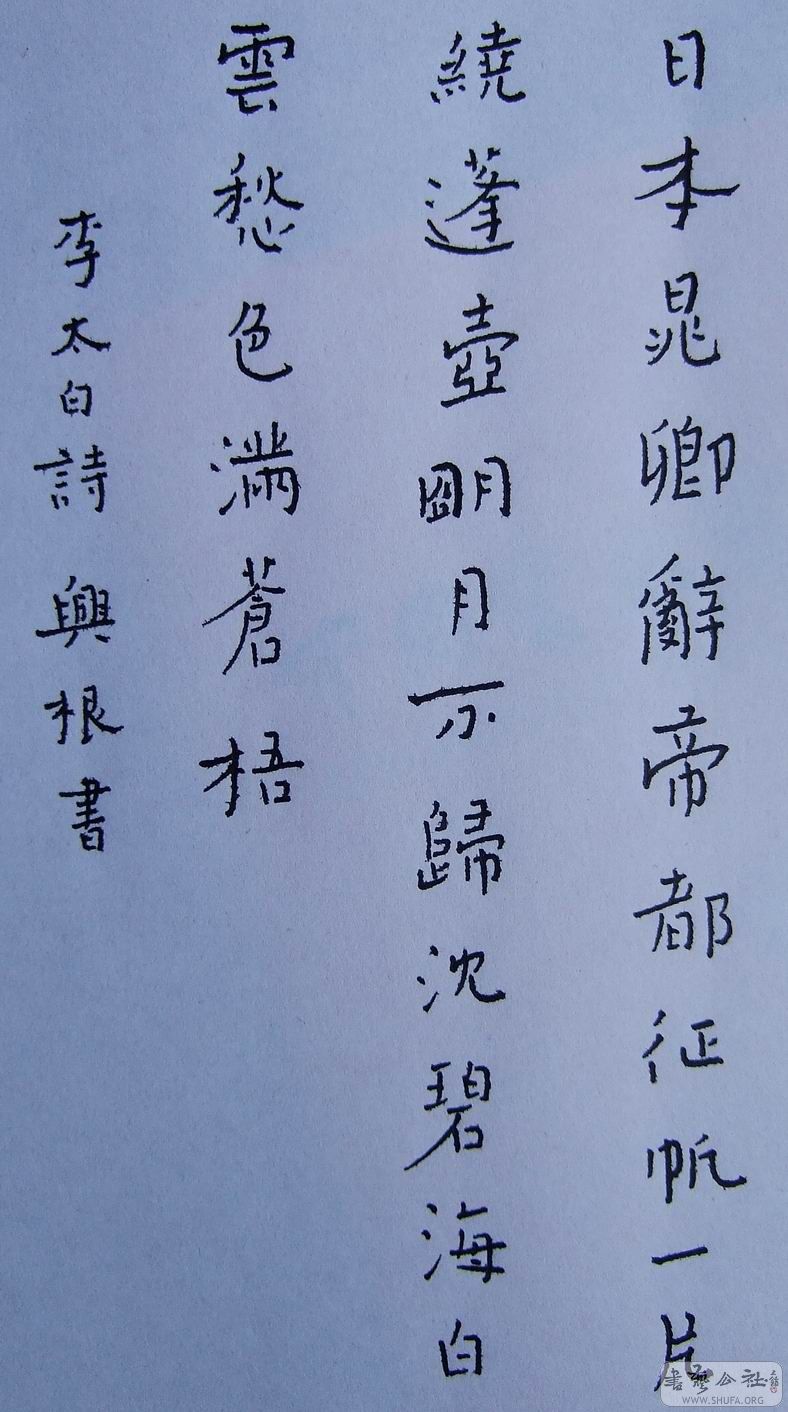 日本晁卿辭帝都征帆一片
繞蓬壺明月不歸沈碧海白
雲愁色滿蒼梧
李太白詩 興根書
書藝公社
WWW.SHUFA.ORG